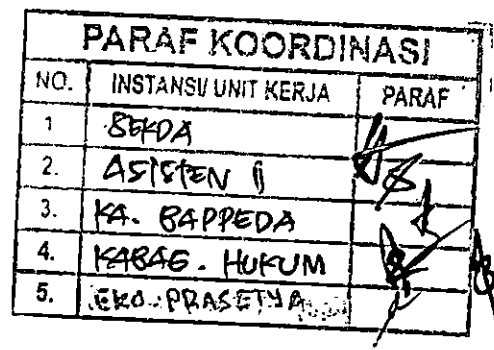 PARAF KOORDINASI
NO. INSTANSI/ UNIT KERJA PARAF
1 SEKDA
2. ASISTEN II
3. KA. BAPPEDA
4. KABAG. HUKUM
5. EKO PRASETYA